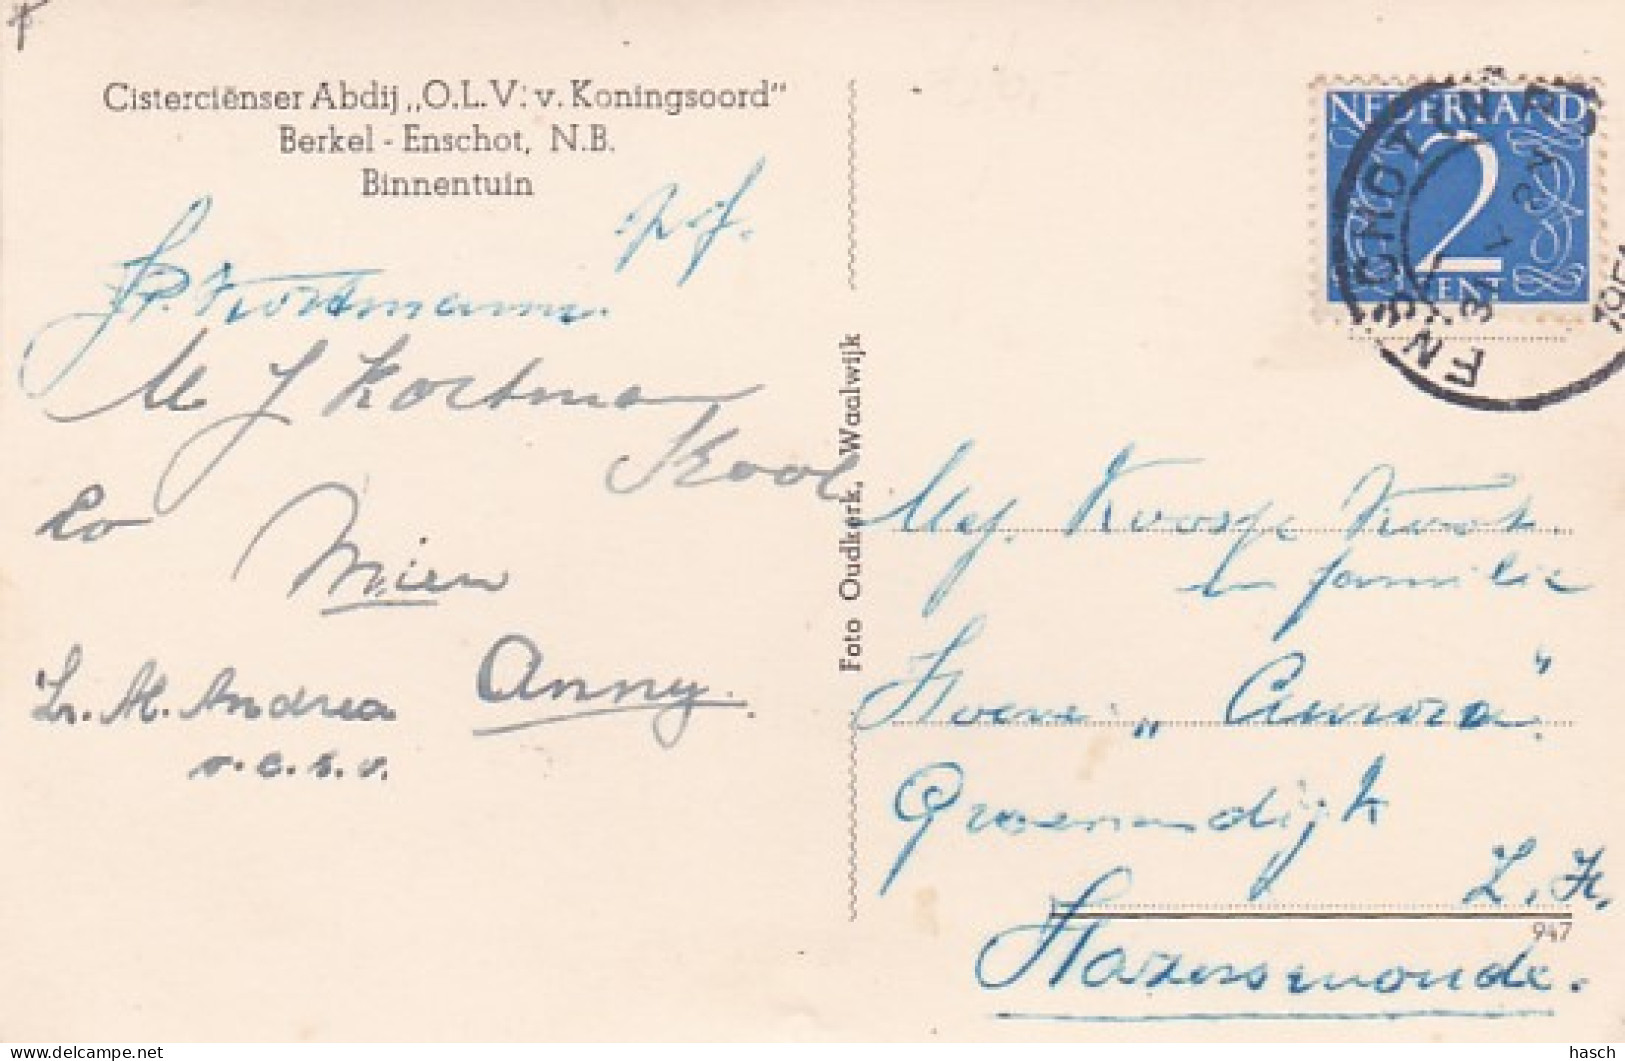 Cisterciënser Abdij „O.L.V. v. Koningsoord"
Berkel - Enschot, N.B.
Binnentuin
p.f.
Kortmann.
M J Kortman
Kool
Co
Mien
Anny.
Zr. M. Andrea
r.c.s.v.
Foto Oudkerk, Waalwijk
NEDERLAND
2
CENT
ENSCHOT
Mej. Koosje Knoot.
en familie
Hoeve „Aurora"
Groenendijk
Z.H.
Hazerswoude.
947
hasch